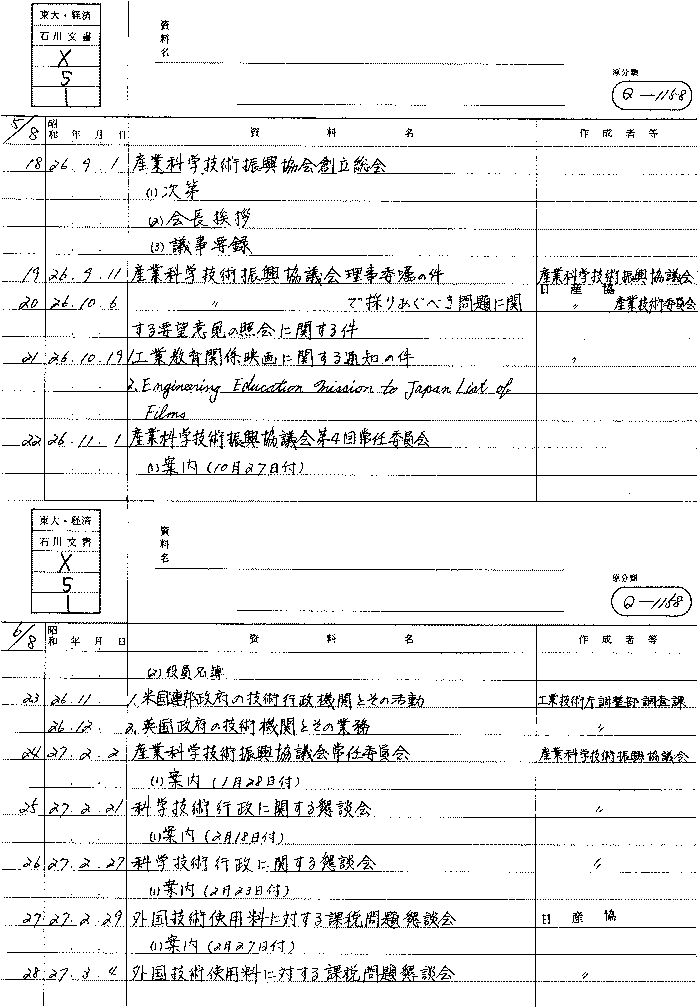 東大・経済
石川文書
X
5
1
資料名
原分類
Q-1158
5/8 昭和 年 月 日 資 料 名 作成者等
18 26.9.1 産業科学技術振興協会創立総会
(1)次第
(2)会長挨拶
(3)議事要録
19 26.9.11 産業科学技術振興協議会理事委嘱の件 産業科学技術振興協議会
20 26.10.6 〃 で採りあぐべき問題に関 日産協 〃 産業技術委員会
する要望意見の照会に関する件
21 26.10.19 1.工業教育関係映画に関する通知の件 〃
2. Engineering Education Mission to Japan List of
Films
22 26.11.1 産業科学技術振興協議会第4回常任委員会
(1)案内(10月27日付)
東大・経済
石川文書
X
5
1
資料名
原分類
Q-1158
6/8 昭和 年 月 日 資 料 名 作成者等
(2)役員名簿
23 26.11. 1.米国連邦政府の技術行政機関とその活動 工業技術庁調整部調査課
26.12. 2.英国政府の技術機関とその業務 〃
24 27.2.2 産業科学技術振興協議会常任委員会 産業科学技術振興協議会
(1)案内(1月28日付)
25 27.2.21 科学技術行政に関する懇談会 〃
(1)案内(2月18日付)
26 27.2.27 科学技術行政に関する懇談会 〃
(1)案内(2月23日付)
27 27.2.29 外国技術使用料に対する課税問題懇談会 日産協
(1)案内(2月27日付)
28 27.3.4 外国技術使用料に対する課税問題懇談会 〃